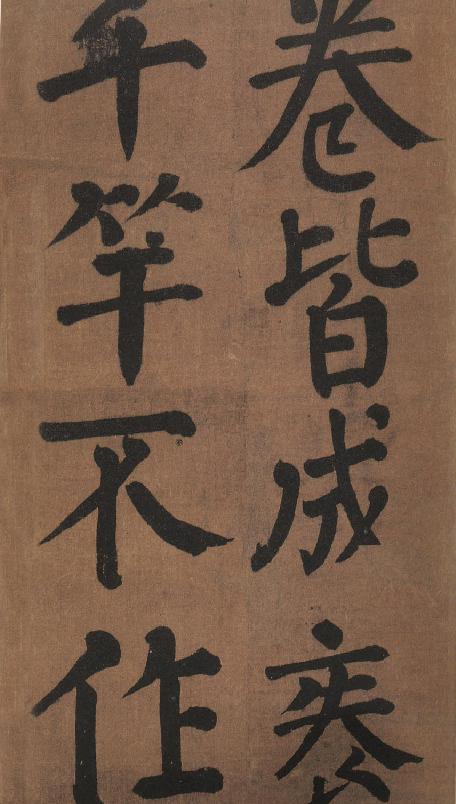 卷皆成
千竿不作